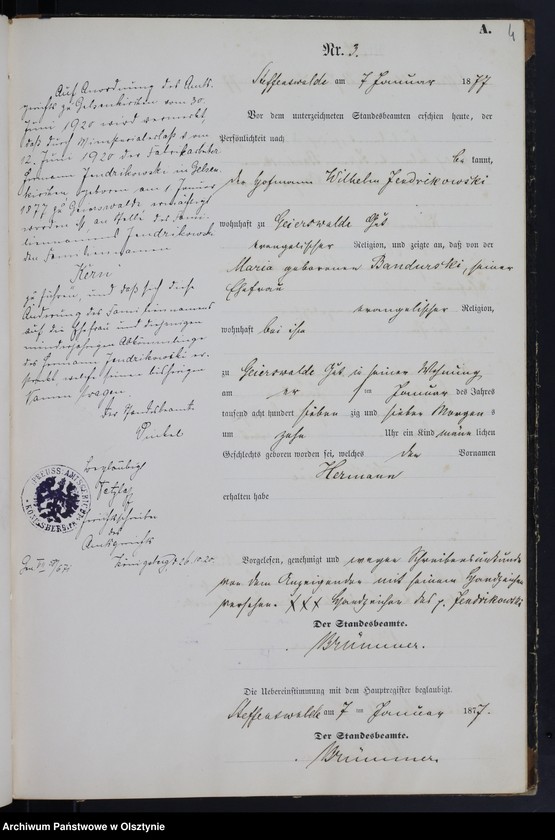 A. 4
Nr. 3.
Steffenswalde am 7 Januar 1877
Vor dem unterzeichneten Standesbeamten erschien heute, der
Persönlichkeit nach
be kannt,
der Hofmann Wilhelm Jendrikowski
wohnhaft zu Geierswalde Gut
evangelischer Religion, und zeigte an, daß von der
Maria geborenen Bandurski, seiner
Ehefrau
evangelischer Religion,
wohnhaft bei ihm
zu Geierswalde Gut in seiner Wohnung
am Januar des Jahres
tausend acht hundert sieben zig und sieben Morgens
um zehn Uhr ein Kind männ lichen
Geschlechts geboren worden sei, welches den Vornamen
Hermann
erhalten habe
Vorgelesen, genehmigt und wegen Schreibensunkunde
von dem Anzeigenden mit seinem Handzeichen
versehen. XXX Handzeichen des p. Jendrikowski
Der Standesbeamte.
Brümmer.
Die Uebereinstimmung mit dem Hauptregister beglaubigt.
Steffenswalde am 7 Januar 1877.
Der Standesbeamte.
Brümmer.
Auf Anordnung des Amts-
gerichts zu Gelsenkirchen vom 30.
Juni 1920 wird vermerkt,
daß durch Ministerialerlaß vom
12. Juni 1920 der Fabrikarbeiter
Hermann Jendrikowski in Gelsen-
kirchen, geboren am 1 Januar
1877 zu Geierswalde ermächtigt
worden ist, an Stelle des Fami-
liennamens Jendrikowski
den Familiennamen
Kern
zu führen, und daß sich diese
Änderung des Familiennamens
auf die Ehefrau und diejenigen
minderjährigen Abkömmlinge
des Hermann Jendrikowski er-
streckt, welche seinen bisherigen
Namen tragen.
Der Standesbeamte
Beglaubigt
Gerichtsschreiber
des
Amtsgerichts
Königsberg, d. 26.10.20.
PREUSS. AMTSGERICHT
KÖNIGSBERG
Archiwum Państwowe w Olsztynie